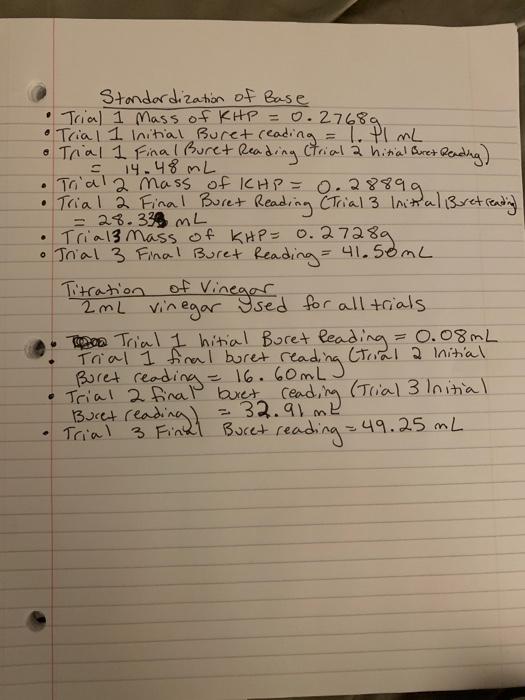 Standardization of Base
• Trial 1 Mass of KHP = 0.2768g
• Trial 1 Initial Buret reading = 1.11 mL
• Trial 1 Final Buret Reading (Trial 2 Initial Buret Reading)
= 14.48 mL
• Trial 2 Mass of KHP = 0.2889g
• Trial 2 Final Buret Reading (Trial 3 Initial Buret reading)
= 28.33 mL
• Trial 3 Mass of KHP = 0.2728g
• Trial 3 Final Buret Reading = 41.50 mL
Titration of Vinegar
2mL vinegar used for all trials
• Trial 1 Initial Buret Reading = 0.08mL
• Trial 1 final buret reading (Trial 2 Initial
Buret reading = 16.60mL)
• Trial 2 final buret reading (Trial 3 Initial
Buret reading) = 32.91 mL
• Trial 3 Final Buret reading = 49.25 mL